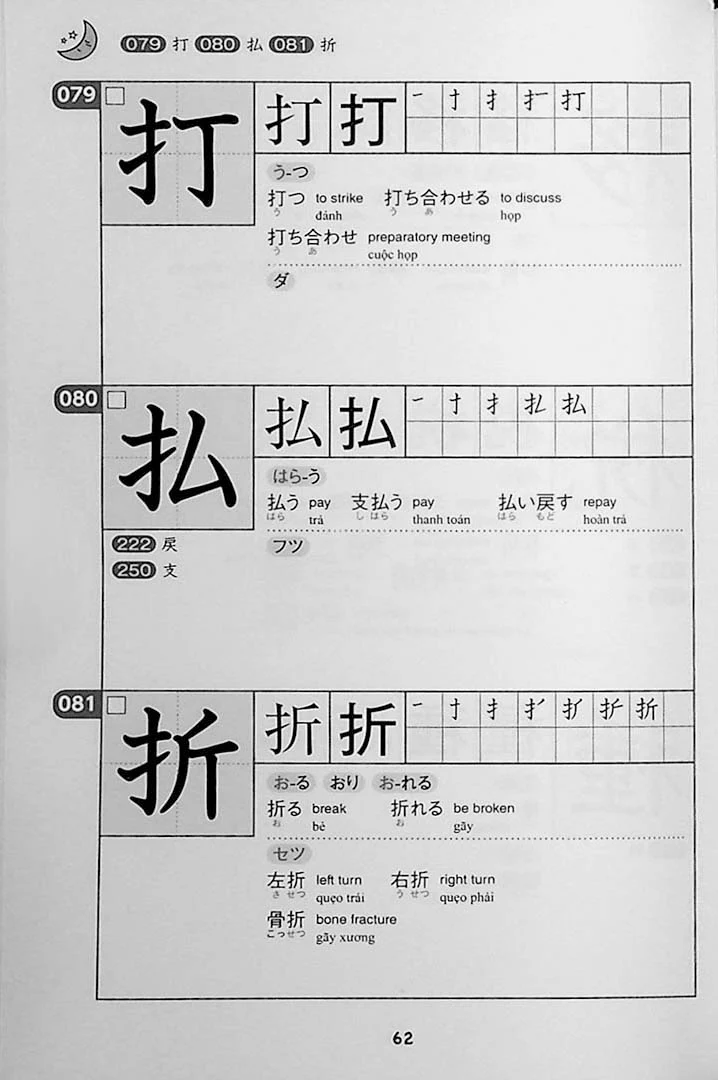 079 打 080 払 081 折
079 打 打 打 一 十 扌 扌一 打
う-つ
打つ to strike 打ち合わせる to discuss
う う あ
đánh họp
打ち合わせ preparatory meeting
う あ
cuộc họp
ダ
080 払 払 払 一 十 扌 払 払
はら-う
払う pay 支払う pay 払い戻す repay
はら し はら はら もど
trả thanh toán hoàn trả
222 戻
フツ
250 支
081 折 折 折 一 十 扌 折
お-る おり お-れる
折る break 折れる be broken
お お
bẻ gãy
セツ
左折 left turn 右折 right turn
させつ うせつ
quẹo trái quẹo phải
骨折 bone fracture
こっせつ
gãy xương
62